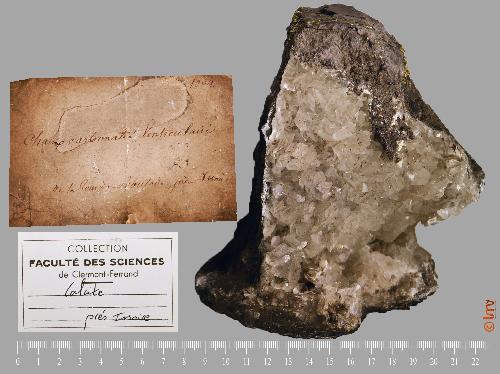 Chaux carbonatée lenticulaire
de la
COLLECTION
FACULTÉ DES SCIENCES
de Clermont-Ferrand
Calcite
près Issoire
0 1 2 3 4 5 6 7 8 9 10 11 12 13 14 15 16 17 18 19 20 21 22
© lmv